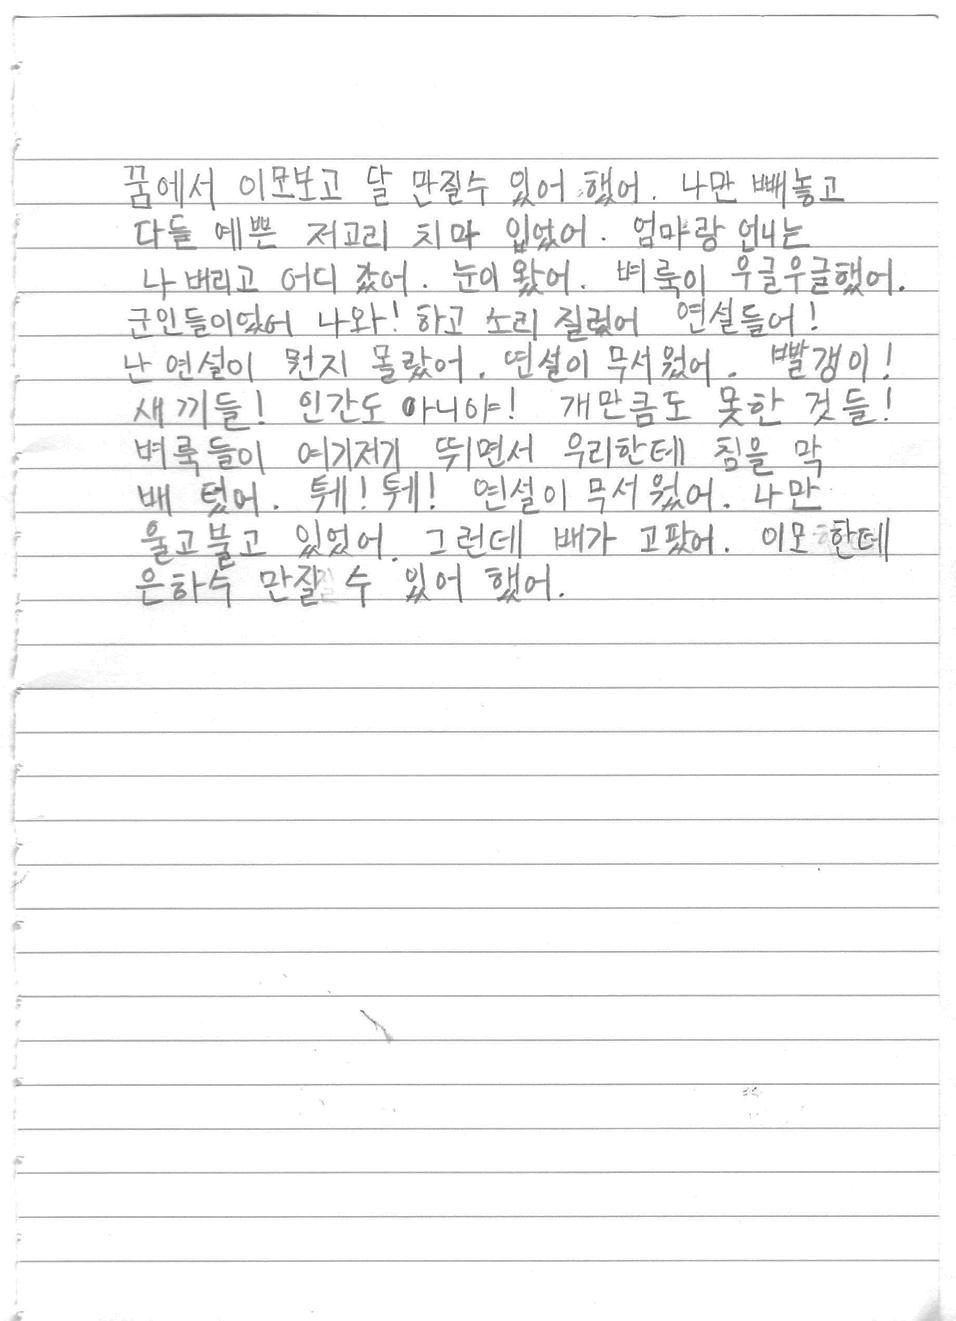 꿈에서 이모보고 달 만질수 있어 했어. 나만 빼놓고
다들 예쁜 저고리 치마 입었어. 엄마랑 언니는
나 버리고 어디 갔어. 눈이 왔어. 벼룩이 우글우글했어.
군인들이었어 나와! 하고 소리 질렀어 연설들어!
난 연설이 뭔지 몰랐어. 연설이 무서웠어. 빨갱이!
새끼들! 인간도 아니야! 개만큼도 못한 것들!
벼룩들이 여기저기 뛰면서 우리한테 침을 막
배 텄어. 퉤! 퉤! 연설이 무서웠어. 나만
울고불고 있었어. 그런데 배가 고팠어. 이모한테
은하수 만질 수 있어 했어.